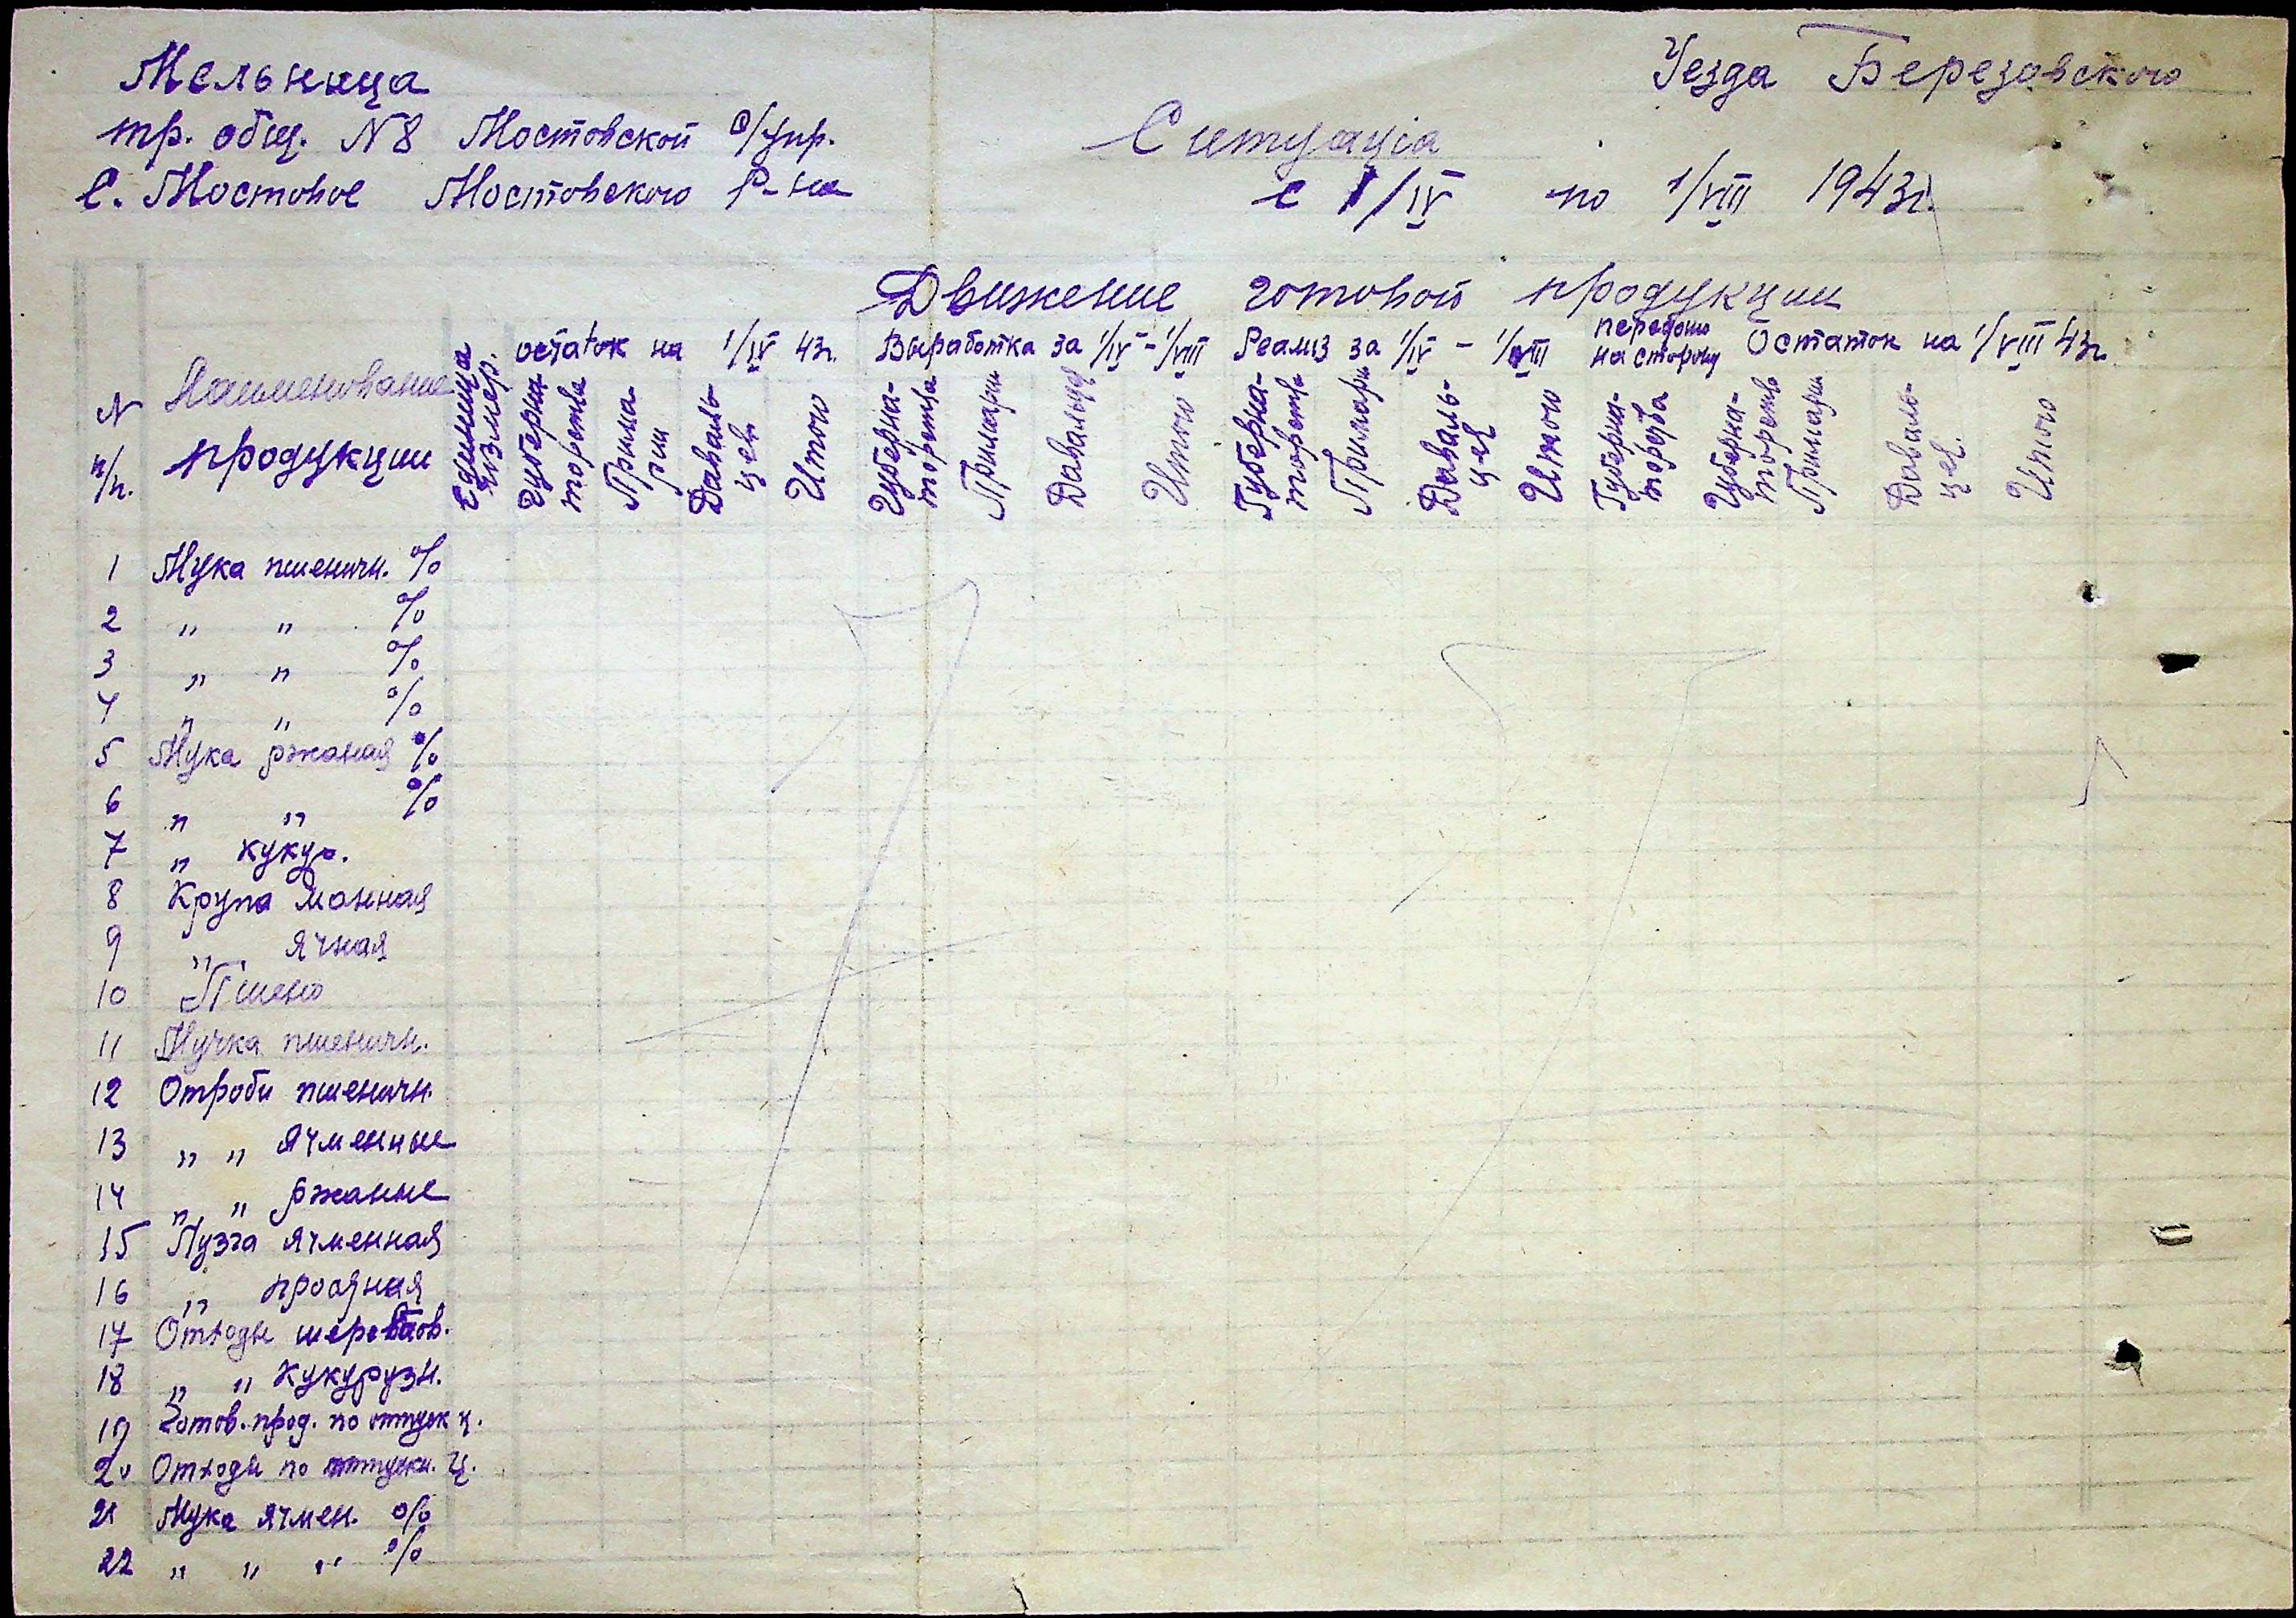 Мельница
тр. общ. N8 Мостовской с/упр.
С. Мостовое Мостовского Р-на
Уезда Березовского
Ситуаціа
с 1/IV по 1/VIII 1943г.
Движение готовой продукции
N п/п.
Наименование продукции
Единица измер.
остаток на 1/IV 43г.
Губерна-торства
Прима-рии
Даваль-цев
Итого
Выработка за 1/IV - 1/VIII
Губерна-торства
Примарии
Давальцев
Итого
Реализ за 1/IV - 1/VIII
Губерна-торства
Примари
Даваль-цев
Итого
передано на сторону
Губерна-торства
Остаток на 1/VIII 43г.
Губерна-торство
Примарии
Даваль-цев.
Итого
1 Мука пшеничн. %
2 " " %
3 " " %
4 " " %
5 Мука ржаная %
6 " " %
7 " кукур.
8 Крупа манная
9 " ячная
10 Пшено
11 Мучка пшеничн.
12 Отроби пшеничн.
13 " " ячменные
14 " " ржаные
15 Лузга ячменная
16 " просяная
17 Отходы шеретов.
18 " " Кукурузн.
19 Готов. прод. по отпуск ц.
20 Отходы по отпускн. ц.
21 Мука ячмен. %
22 " " " %